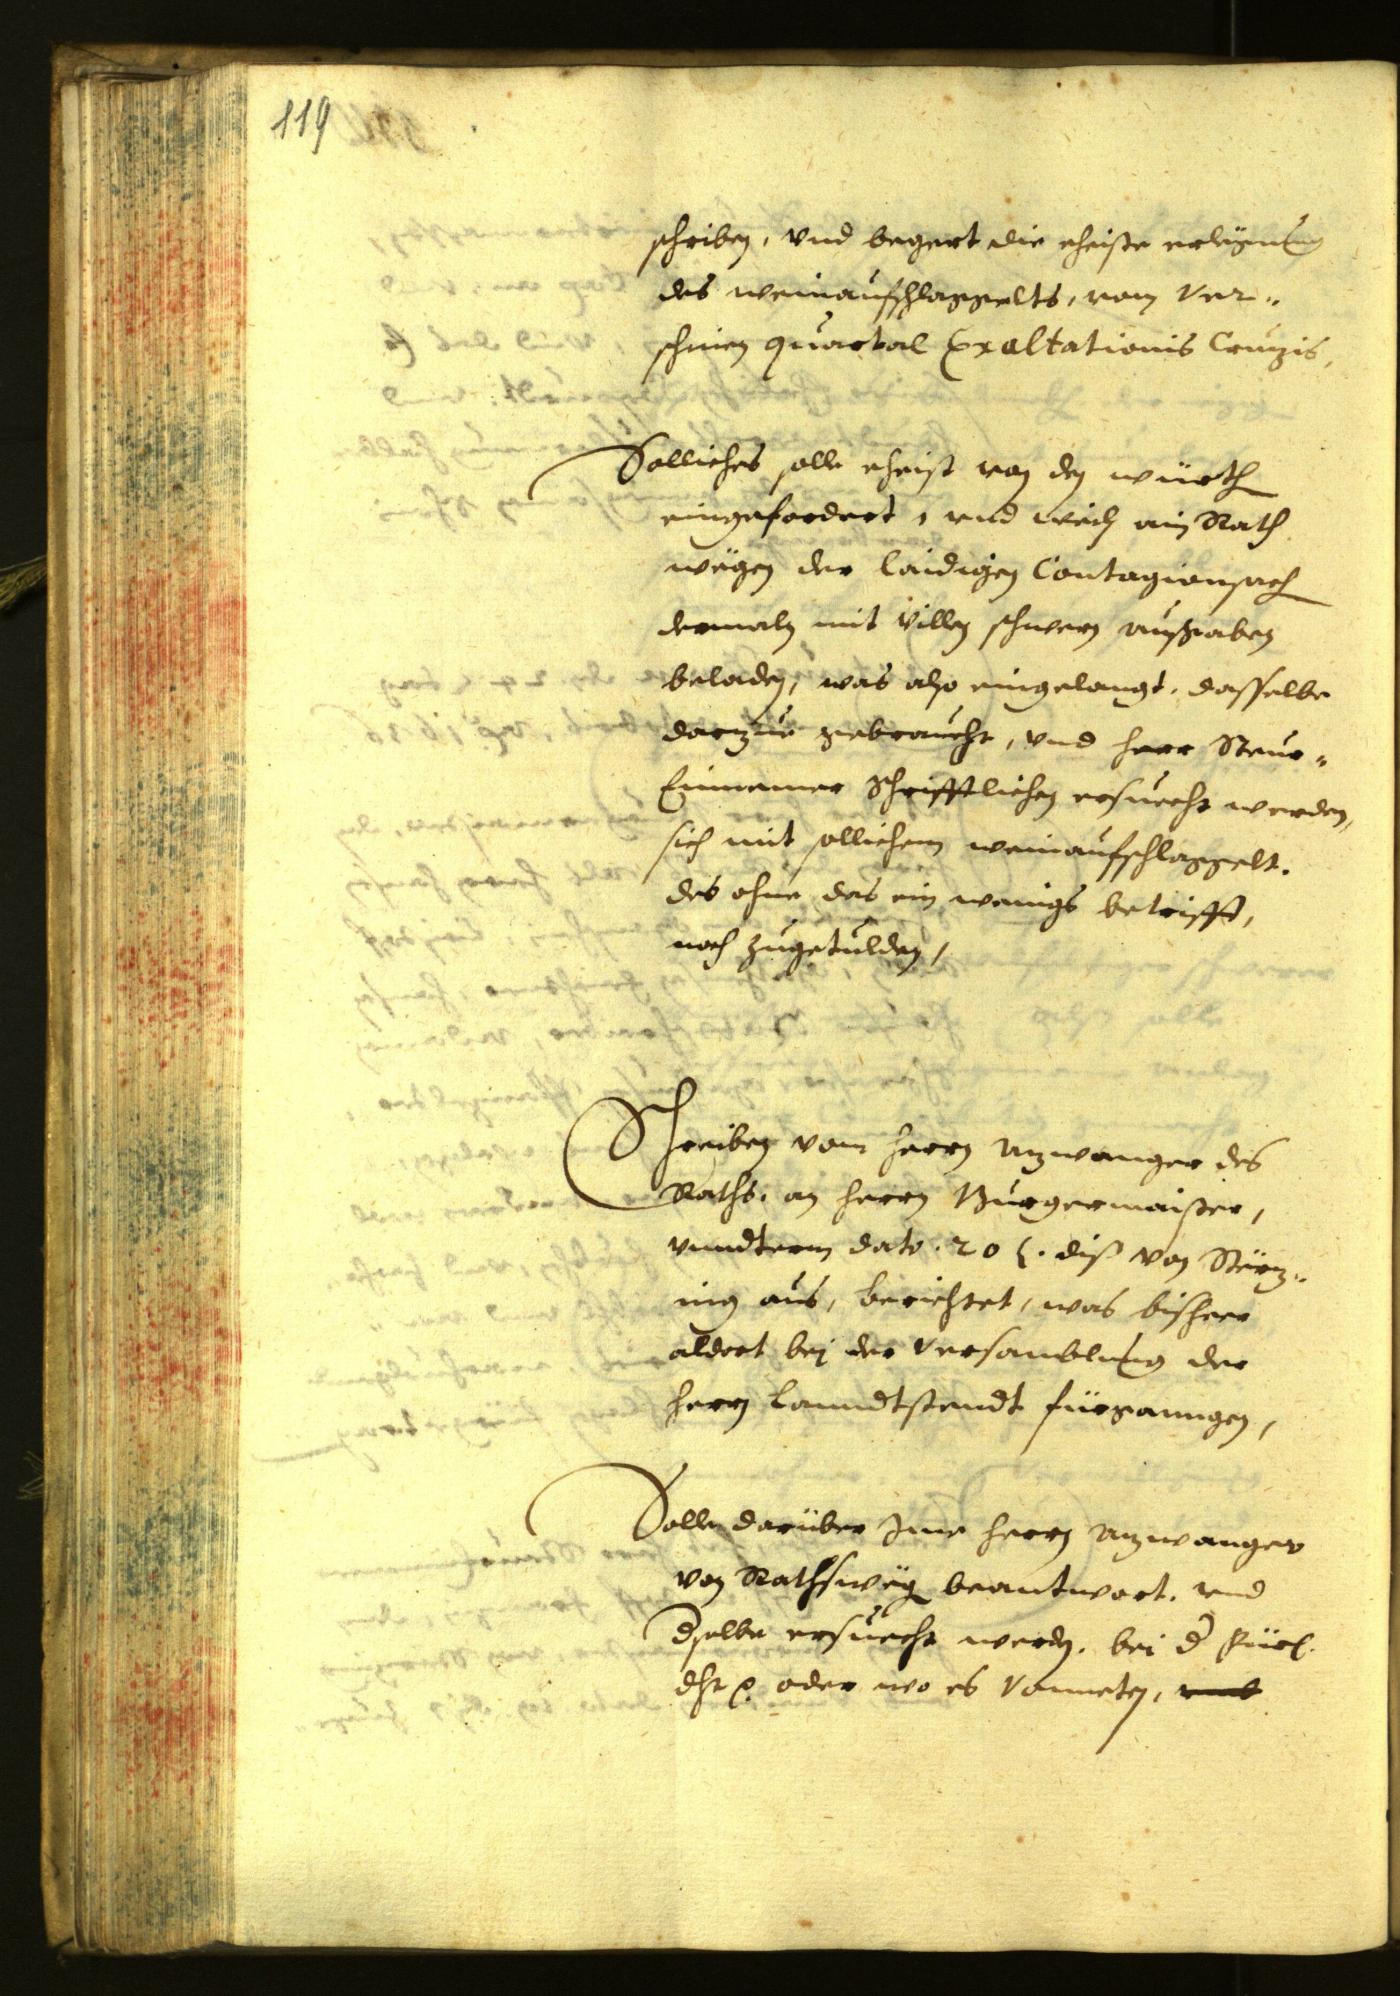 119
schriben, vnd begert die eheiste erlegung
des weinaufschlaggelts, vom ver„
schinen quartal Exaltationis Crucis,
Solliches solle eheist von den würth
eingefordert, vnd weil ain Rath
wegen der laidigen Contagionsach
dermaln mit villen schwern außgaben
beladen, was also eingelangt, dasselbe
darzue gebraucht, vnd herr Steur„
Einnemer schrifftlichen ersuecht werden,
sich mit sollichem weinaufschlaggelt.
des ohne das ein wenigs betrifft,
noch zugetulden,
Schreiben vom herrn Azwanger des
Raths, an herrn Burgermaister,
vnndterm dato 20 t. diß von Stërz„
ing aus, berichtet, was bisheer
aldort bej der versamblung der
herrn Lanndtstendt fürganngen,
Solle darüber Jme herrn Azwanger
von Rathsweg beantwort, vnd
dselbe ersuecht werden, bei d Fürl.
dht p. oder wo es vonneten,